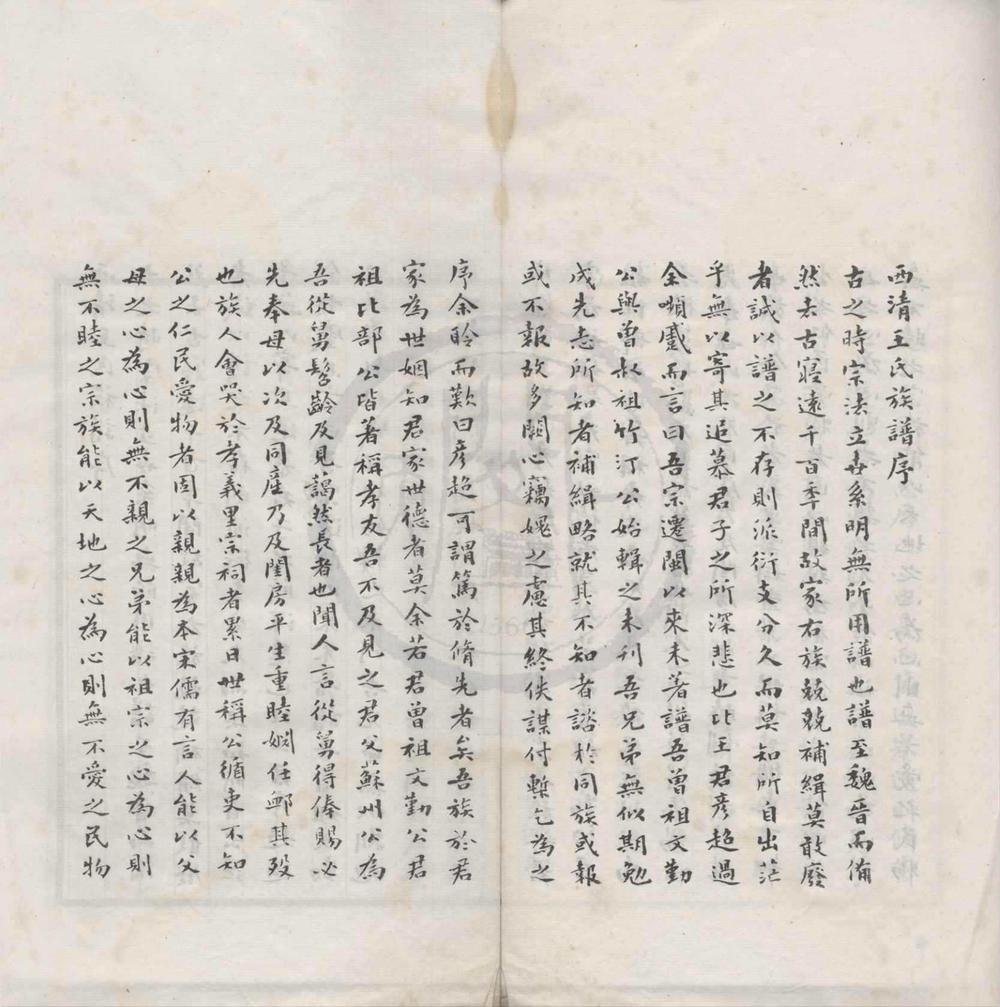 西清王氏族譜序
古之時宗法立世系明無所用譜也譜至魏晉而備
然去古寖遠千百年間故家右族兢兢補緝莫敢廢
者誠以譜之不存則派衍支分久而莫知所自出茫
乎無以寄其追慕君子之所深悲也比王君彥超過
余嚬蹙而言曰吾宗遷閩以來未著譜吾曾祖文勤
公與曾叔祖竹汀公始輯之未刊吾兄弟無似期勉
成先志所知者補緝略就其不知者諮於同族或報
或不報故多闕心竊媿之慮其終佚謀付槧乞為之
序余聆而歎曰彥超可謂篤於脩先者矣吾族於君
家為世姻知君家世德者莫余若君曾祖文勤公君
祖比部公皆著稱孝友吾不及見之君父蘇州公為
吾從舅髫齡及見藹然長者也聞人言從舅得俸賜必
先奉母以次及同產乃及閨房平生重睦婣任卹其歿
也族人會哭於孝義里宗祠者累日世稱公循吏不知
公之仁民愛物者固以親親為本宋儒有言人能以父
母之心為心則無不親之兄弟能以祖宗之心為心則
無不睦之宗族能以天地之心為心則無不愛之民物